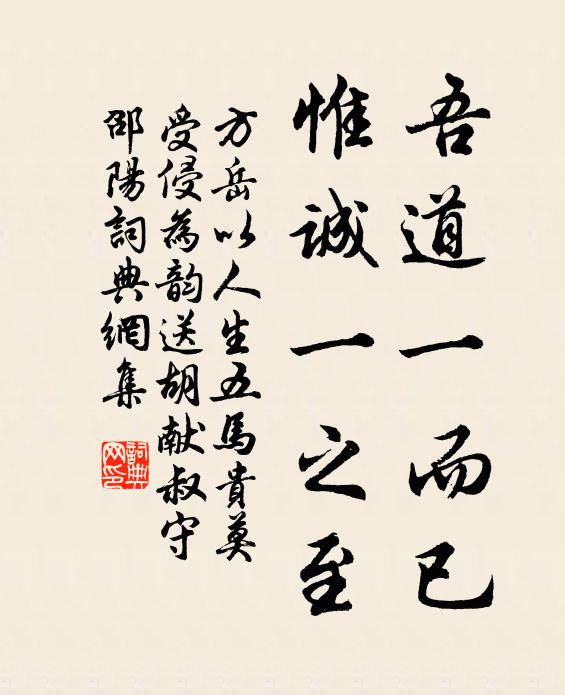 吾道一而已
惟誠一之至
方岳以人生五馬貴莫
受侵為韵送胡献叔守
邵陽詞典網集
詞典网印